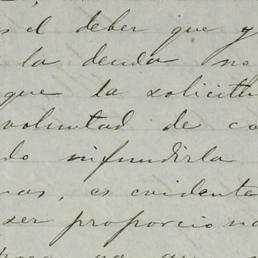 s el deber que y
la deuda no
que la solicitu
voluntad de co
do infundirla
nas, es evidente
ser proporciona